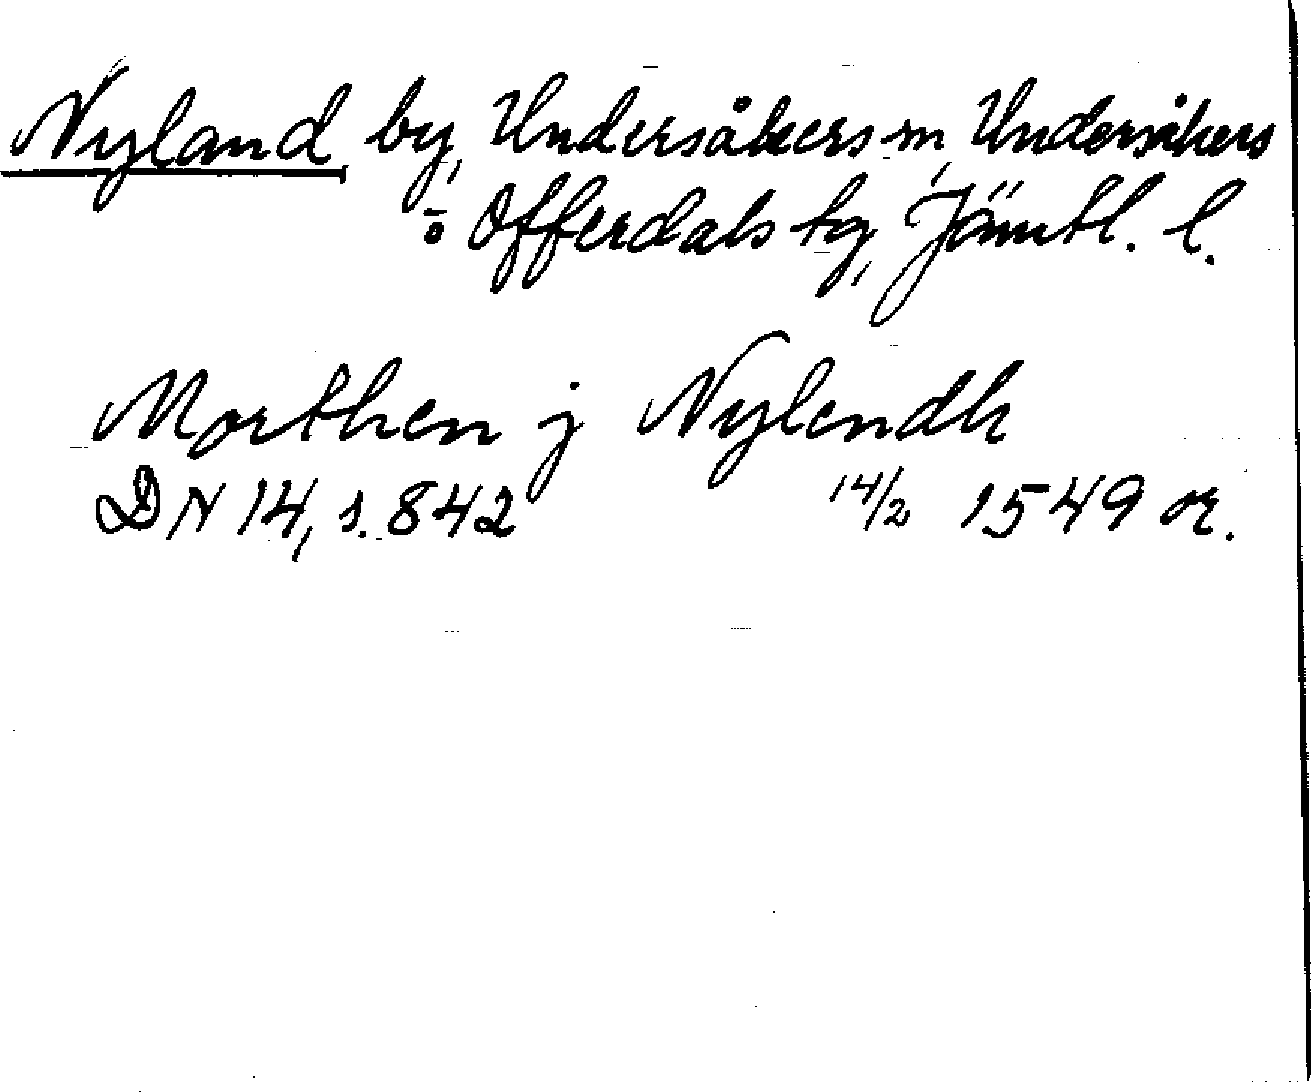 Nyland, by, Undersåkers sn, Undersåkers
o Offerdals tg, Jämtl. l.
Morthen j Nylendh
DN 14, s. 842 14/2 1549 or.